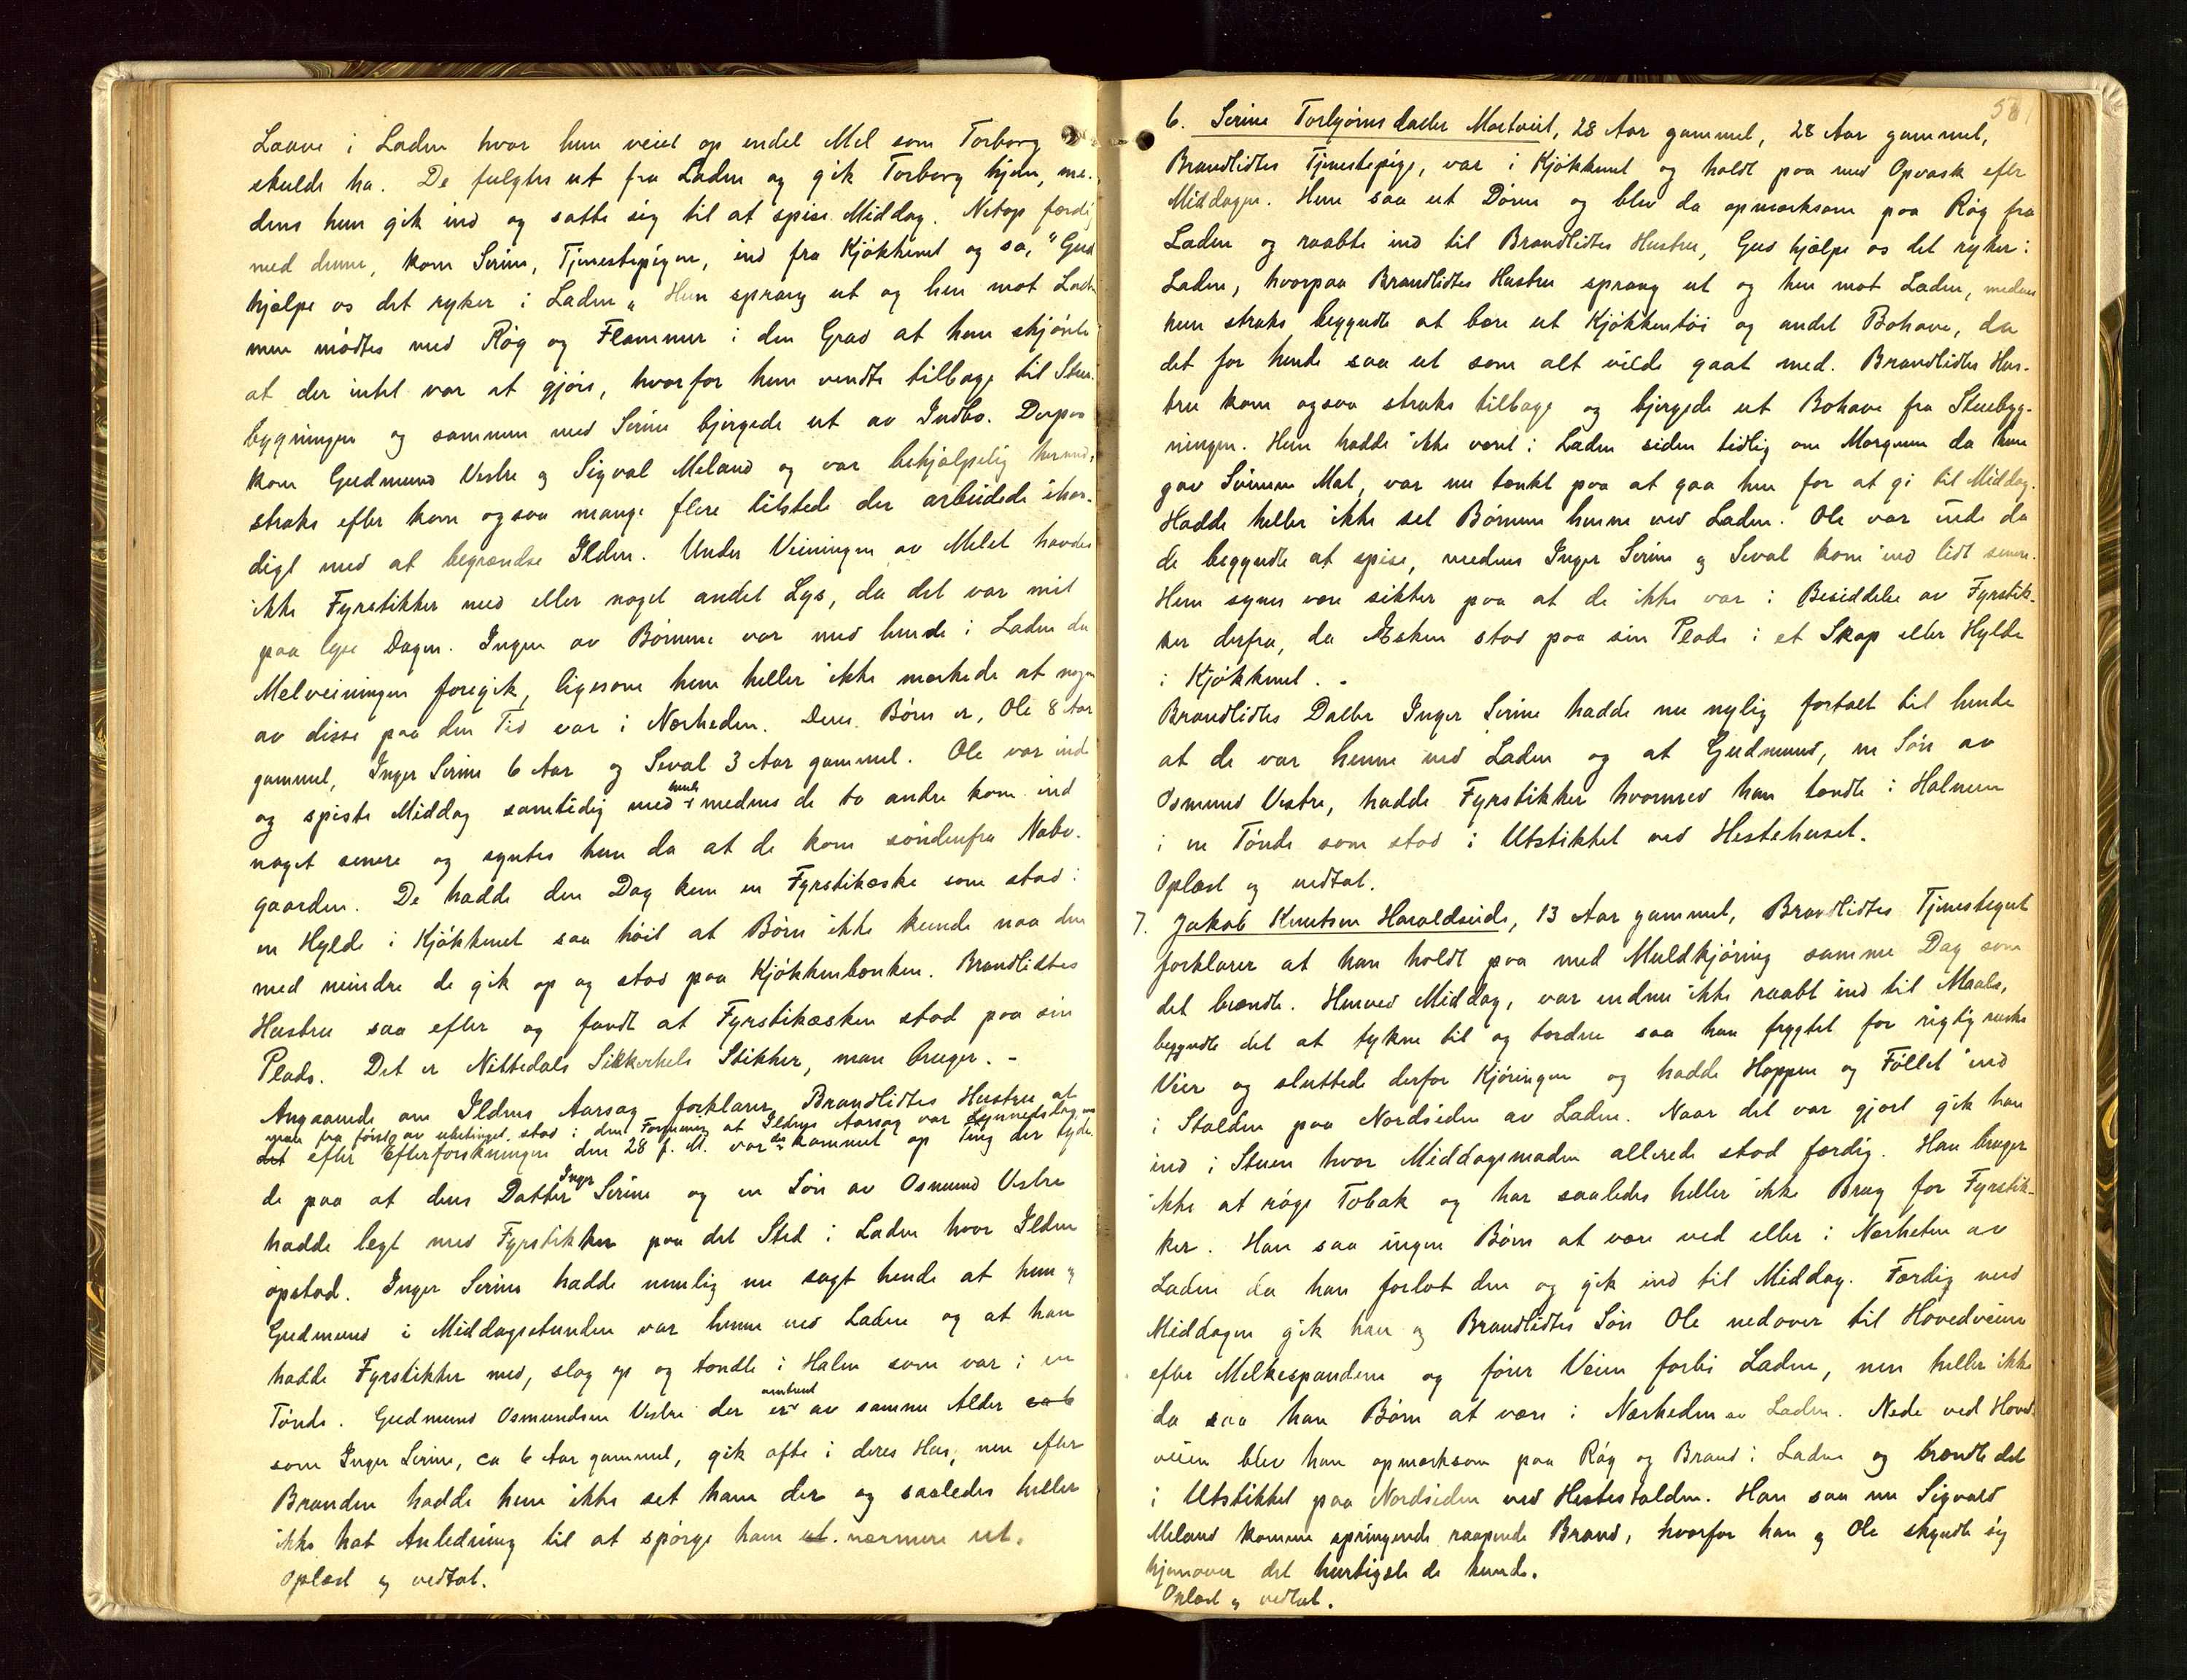 Laave i Laden hvor hun veiet op endel Mel som Torborg
skulde ha. De fulgtes ut fra Laden og gik Torborg hjem, me-
dens hun gik ind og satte sig til at spise Middag. Netop færdig
med denne, kom Serine, Tjenestepigen, ind fra Kjøkkenet og sa, "Gud
hjælpe os det ryker i Laden" Hun sprang ut og hen mot Laden
men mødtes med Røg og Flammer i den Grad at hun skjønte
at der intet var at gjøre, hvorfor hun vendte tilbage til Stue-
bygningen og sammen med Serine bjergede ut av Indbo. Derpaa
kom Gudmund Vestre og Sigval Meland og var behjælpelig hermed,
straks efter kom ogsaa mange flere tilstede der arbeidede ihær-
digt med at begrændse Ilden. Under Veiningen av Melet havdes
ikke Fyrstikker med eller noget andet Lys, da det var mit
paa lyse Dagen. Ingen av Børnene var med hende i Laden da
Melveiningen foregik, ligesom hun heller ikke merkede at nogen
av disse paa den Tid var i Nærheden. Deres Børn er, Ole 8 Aar
gammel, Inger Serine 6 Aar og Seval 3 Aar gammel. Ole var inde
og spiste Middag samtidig med hende medens de to andre kom ind
noget senere og syntes hun da at de kom søndenfra Nabo-
gaarden. De hadde den Dag kun en Fyrstikæske som stod i
en Hylde i Kjøkkenet saa høit at Børn ikke kunde naa den
med mindre de gik op og stod paa Kjøkkenbænken. Brandlidtes
Hustru saa efter og fandt at Fyrstikæsken stod paa sin
Plads. Det er Nittedals Sikkerheds Stikker, man bruger. -
Angaaende om Ildens Aarsag forklarer Brandlidtes Hustru at
man fra først av ubetinget stod i den Formening at Ildens Aarsag var Lynnedslag men
det efter Efterforskningen den 28 f. M. var der kommet op Ting der tyde-
de paa at dens Datter Inger Serine og en Søn av Osmund Vestre
hadde legt med Fyrstikker paa det Sted i Laden hvor Ilden
opstod. Inger Serine hadde nemlig nu sagt hende at hun og
Gudmund i Middagsstunden var henne ved Laden og at han
hadde Fyrstikker med, slog op og tændte i Halm som var i en
Tønde. Gudmund Osmundsen Vestre der er omtrent av samme Alder ca 6
som Inger Serine, ca 6 Aar gammel, gik ofte i deres Hus, men efter
Branden hadde hun ikke set ham der og saaledes heller
ikke hat Anledning til at spørge ham ut nærmere ut.
Oplæst og vedtat.
6. Serine Torbjørnsdatter Mortveit, 28 Aar gammel, 28 Aar gammel,
Brandlidtes Tjenestepige, var i Kjøkkenet og holdt paa med Opvask efter
Middagen. Hun saa ut Døren og blev da opmærksom paa Røg fra
Laden og raabte ind til Brandlidtes Hustru, Gud hjælpe os det ryker i
Laden, hvorpaa Brandlidtes Hustru sprang ut og hen mot Laden, medens
hun straks begyndte at bære ut Kjøkkentøi og andet Bohave, da
det for hende saa ut som alt vilde gaat med. Brandlidtes Hus-
tru kom ogsaa straks tilbage og bjergede ut Bohave fra Stuebyg-
ningen. Hun hadde ikke været i Laden siden tidlig om Morgenen da hun
gav Svinene Mat, var nu tænkt paa at gaa hen for at gi til Middag.
Hadde heller ikke set Børnene henne ved Laden. Ole var inde da
de begyndte at spise, medens Inger Serine og Seval kom ind lidt senere.
Hun synes være sikker paa at de ikke var i Besiddelse av Fyrstik-
ker derfra, da Æsken stod paa sin Plads i et Skap eller Hylde
i Kjøkkenet. -
Brandlidtes Datter Inger Serine hadde nu nylig fortalt til hende
at de var henne ved Laden og at Gudmund, en Søn av
Osmund Vestre, hadde Fyrstikker hvormed han tændte i Halmen
i en Tønde som stod i Utstikket ved Hestehuset.
Oplæst og vedtat.
7. Jakob Knutsen Haraldseide, 13 Aar gammel, Brandlidtes Tjenestegut
forklarer at han holdt paa med Muldkjøring samme Dag som
det brændte. Henved Middag, var endnu ikke raabt ind til Maals,
begyndte det at tykne til og tordne saa han frygtet for rigtig ruske
Veir og sluttede derfor Kjøringen og hadde Hoppen og Føllet ind
i Stalden paa Nordsiden av Laden. Naar det var gjort gik han
ind i Stuen hvor Middagsmaden allerede stod færdig. Han bruger
ikke at røge Tobak og har saaledes heller ikke Brug for Fyrstik-
ker. Han saa ingen Børn at være ved eller i Nærheten av
Laden da han forlot den og gik ind til Middag. Færdig med
Middagen gik han og Brandlidtes Søn Ole nedover til Hovedveien
efter Melkespandene og fører Veien forbi Laden, men heller ikke
da saa han Børn at være i Nærheden av Laden. Nede ved Hoved-
veien blev han opmærksom paa Røg og Brand i Laden og brændte det
i Utstikket paa Nordsiden ved Hestestalden. Han saa nu Sigvald
Meland komme springende raapende Brand, hvorfor han og Ole skyndte sig
hjemover det hurtigste de kunde.
Oplæst og vedtat.